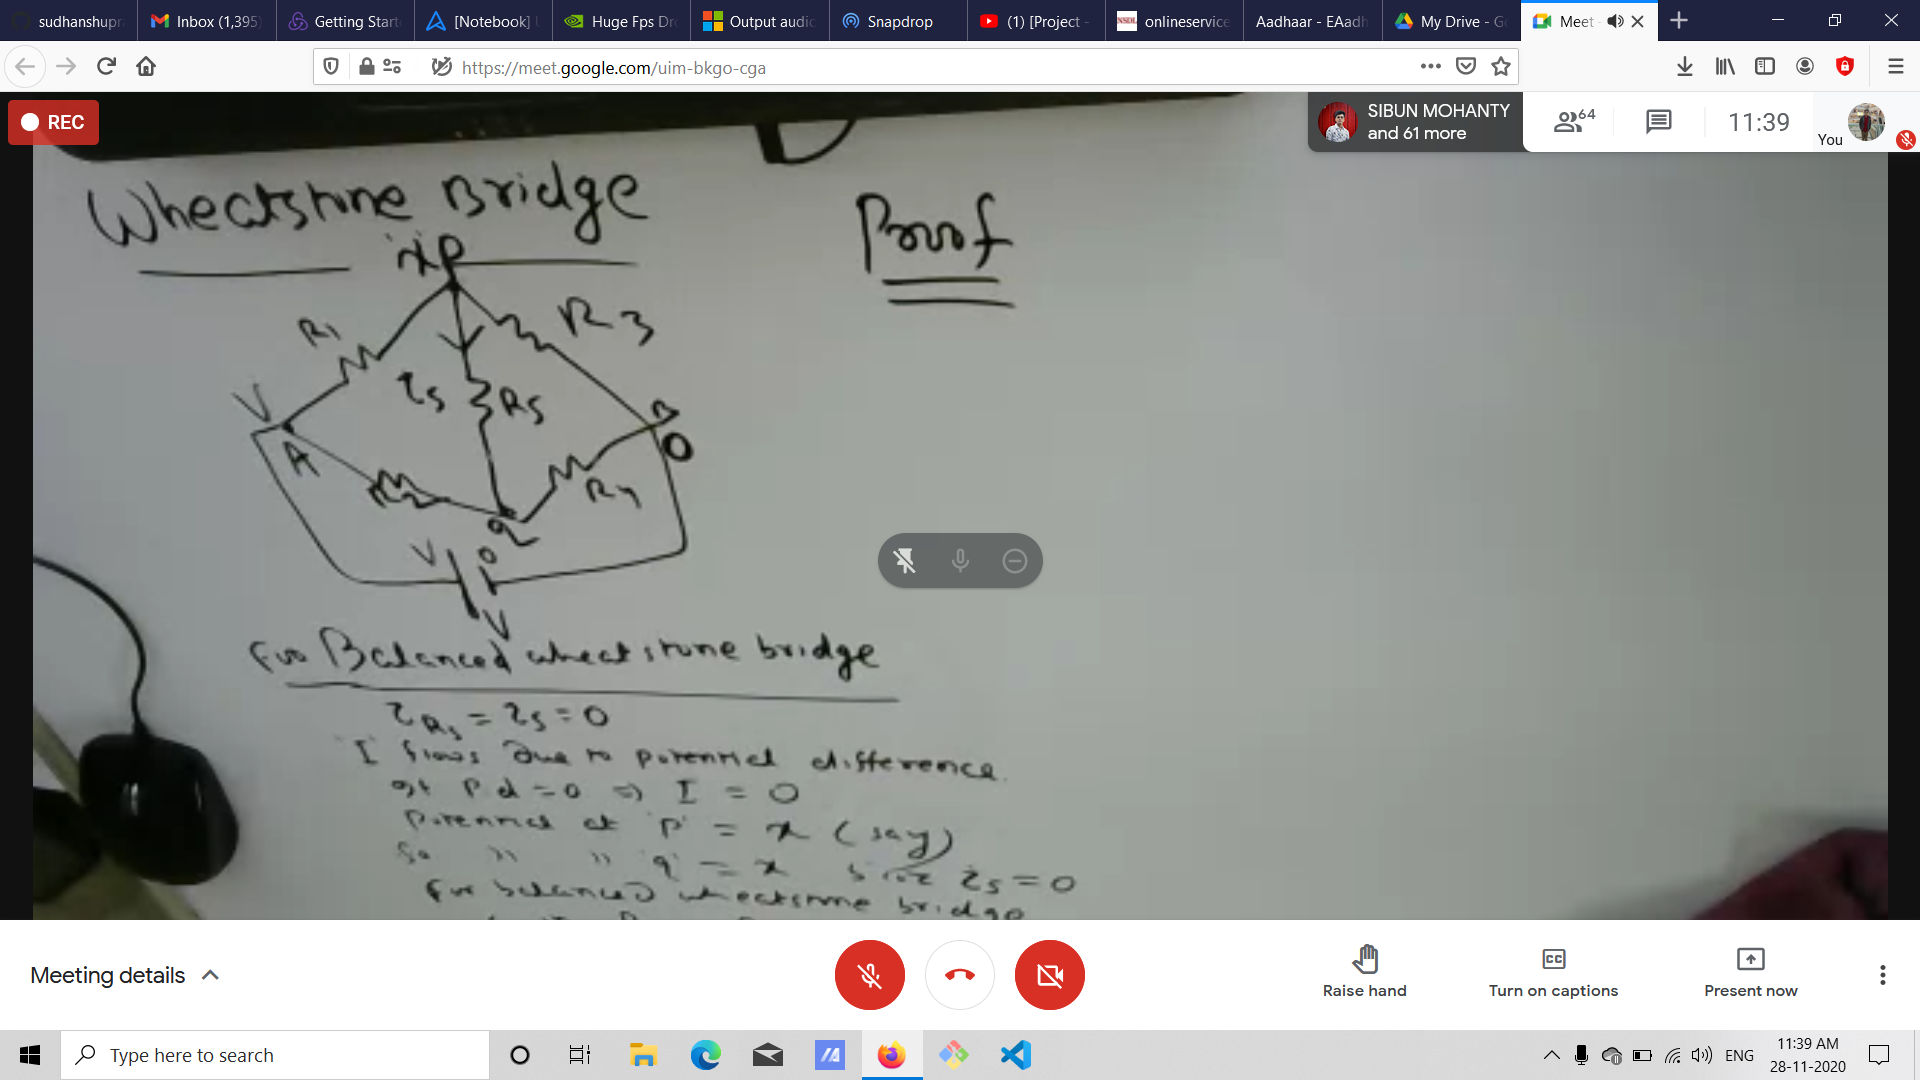 sudhanshupra
Inbox (1,395)
Getting Start
[Notebook] U
Huge Fps Dr
Output audio
Snapdrop
(1) [Project -
NSDL onlineservice
Aadhaar - EAadh
My Drive - Go
Meet -
https://meet.google.com/uim-bkgo-cga
REC
SIBUN MOHANTY
and 61 more
64
11:39
You
Wheatstone Bridge
Proof
'x' P
R1
R3
V
i5
R5
B
A
O
R2
R4
q
V
O
V
For Balanced wheatstone bridge
iR5 = i5 = 0
'I' flows due to potential difference.
If P.d = 0 ⇒ I = 0
Potential at 'P' = x (say)
So " " 'q' = x since i5 = 0
For balanced wheatstone bridge
Meeting details
Raise hand
Turn on captions
Present now
Type here to search
ENG
11:39 AM
28-11-2020